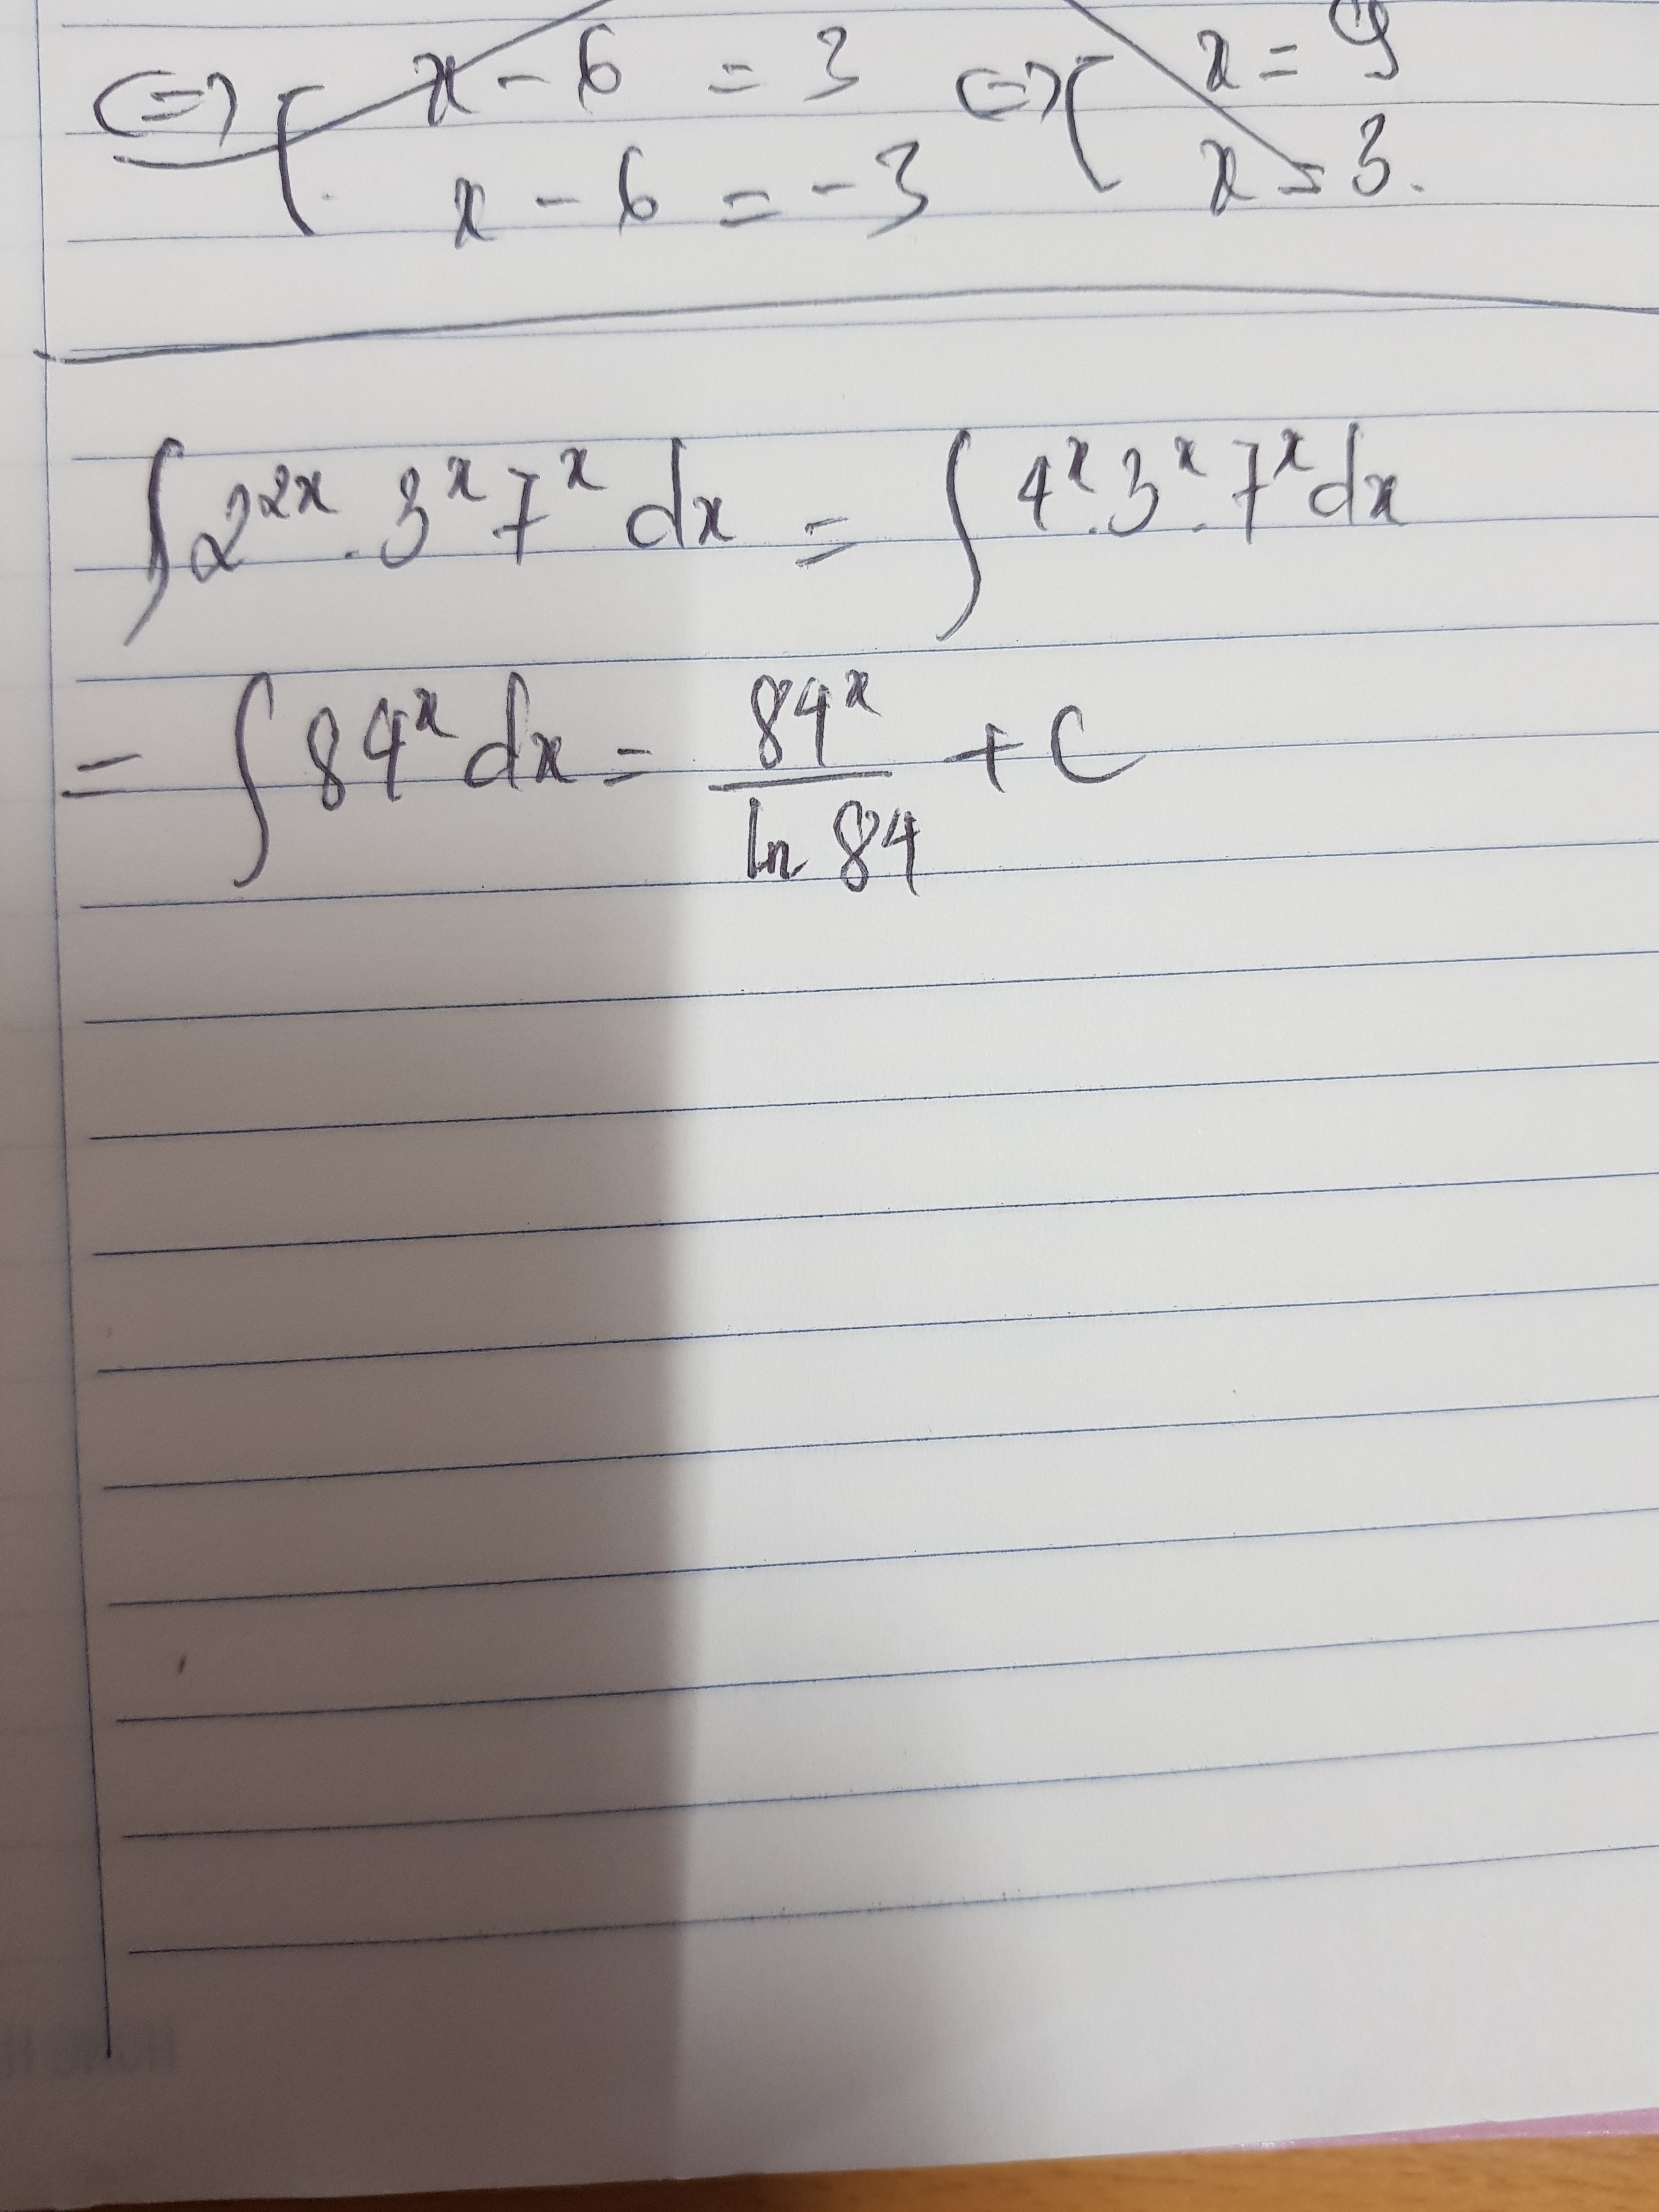 <=> [ x - 6 = 3 <=> [ x = 9
x - 6 = -3 x = 3.
∫ 2^{2x} . 3^x 7^x dx = ∫ 4^x . 3^x . 7^x dx
= ∫ 84^x dx = \frac{84^x}{ln 84} + C